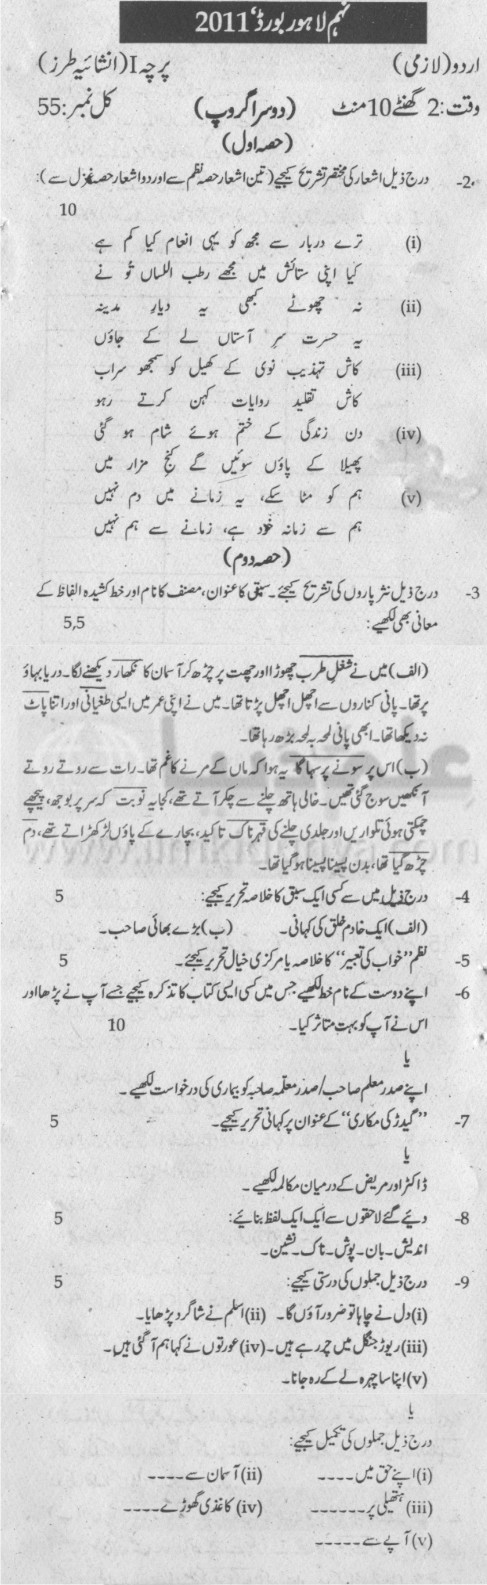 نہم لاہور بورڈ، 2011
اردو (لازمی) پرچہ I (انشائیہ طرز)
وقت: 2 گھنٹے 10 منٹ (دوسرا گروپ) کل نمبر: 55
(حصہ اول)
2- درج ذیل اشعار کی مختصر تشریح کیجیے (تین اشعار حصہ نظم سے اور دو اشعار حصہ غزل سے):
10
(i) ترے دربار سے مجھ کو یہی انعام کیا کم ہے
کیا اپنی ستائش میں مجھے رطب اللساں تو نے
(ii) نہ چھوٹے کبھی یہ دیارِ مدینہ
یہ حسرت سرِ آستاں لے کے جاؤں
(iii) کاش تہذیب نوی کے کھیل کو سمجھو سراب
کاش تقلید روایات کہن کرتے رہو
(iv) دن زندگی کے ختم ہوئے شام ہو گئی
پھیلا کے پاؤں سوئیں گے کنج مزار میں
(v) ہم کو مٹا سکے، یہ زمانے میں دم نہیں
ہم سے زمانہ خود ہے، زمانے سے ہم نہیں
(حصہ دوم)
3- درج ذیل نثر پاروں کی تشریح کیجئے۔ سبق کا عنوان، مصنف کا نام اور خط کشیدہ الفاظ کے
معانی بھی لکھیے: 5,5
(الف) میں نے شغلِ طرب چھوڑا اور چھت پر چڑھ کر آسمان کا نکھار دیکھنے لگا۔ دریا بہاؤ
پر تھا۔ پانی کناروں سے اچھل اچھل پڑتا تھا۔ میں نے اپنی عمر میں ایسی طغیانی اور اتنا پاٹ
نہ دیکھا تھا۔ ابھی پانی لحہ بہ لحہ بڑھ رہا تھا۔
(ب) اس پر سونے پر سہاگا یہ ہوا کہ ماں کے مرنے کا غم تھا۔ رات سے روتے روتے
آنکھیں سوج گئی تھیں۔ خالی ہاتھ چلنے سے چکر آتے تھے، کجا یہ نوبت کہ سر پر بوجھ، پیچھے
چمکتی ہوئی تلواریں اور جلدی چلنے کی قہرناک تاکید، بیچارے کے پاؤں لڑکھڑاتے تھے، دم
چڑھ گیا تھا، بدن پسینا پسینا ہو گیا تھا۔
4- درج ذیل میں سے کسی ایک سبق کا خلاصہ تحریر کیجیے: 5
(الف) ایک خادمِ خلق کی کہانی۔ (ب) بڑے بھائی صاحب۔
5- نظم ”خواب کی تعبیر“ کا خلاصہ یا مرکزی خیال تحریر کیجئے۔ 5
6- اپنے دوست کے نام خط لکھیے جس میں کسی ایسی کتاب کا تذکرہ کیجیے جسے آپ نے پڑھا اور
اس نے آپ کو بہت متاثر کیا۔ 10
یا
اپنے صدر معلم صاحب/صدر معلمہ صاحبہ کو بیماری کی درخواست لکھیے۔
7- ”گیدڑ کی مکاری“ کے عنوان پر کہانی تحریر کیجیے۔ 5
یا
ڈاکٹر اور مریض کے درمیان مکالمہ لکھیے۔
8- دیئے گئے لاحقوں سے ایک ایک لفظ بنائیے: 5
اندیش۔ بان۔ پوش۔ ناک۔ نشین۔
9- درج ذیل جملوں کی درستی کیجیے: 5
(i) دل نے چاہا تو ضرور آؤں گا۔ (ii) اسلم نے شاگرد پڑھایا۔
(iii) ریوڑ جنگل میں چر رہے ہیں۔ (iv) عورتوں نے کہا ہم آ گئی ہیں۔
(v) اپنا سا چہرہ لے کے رہ جانا۔
یا
درج ذیل جملوں کی تکمیل کیجیے:
(i) اپنے حق میں ---- (ii) آسمان سے ----
(iii) ہتھیلی پر ------ (iv) کاغذی گھوڑے ----
(v) آپے سے -----